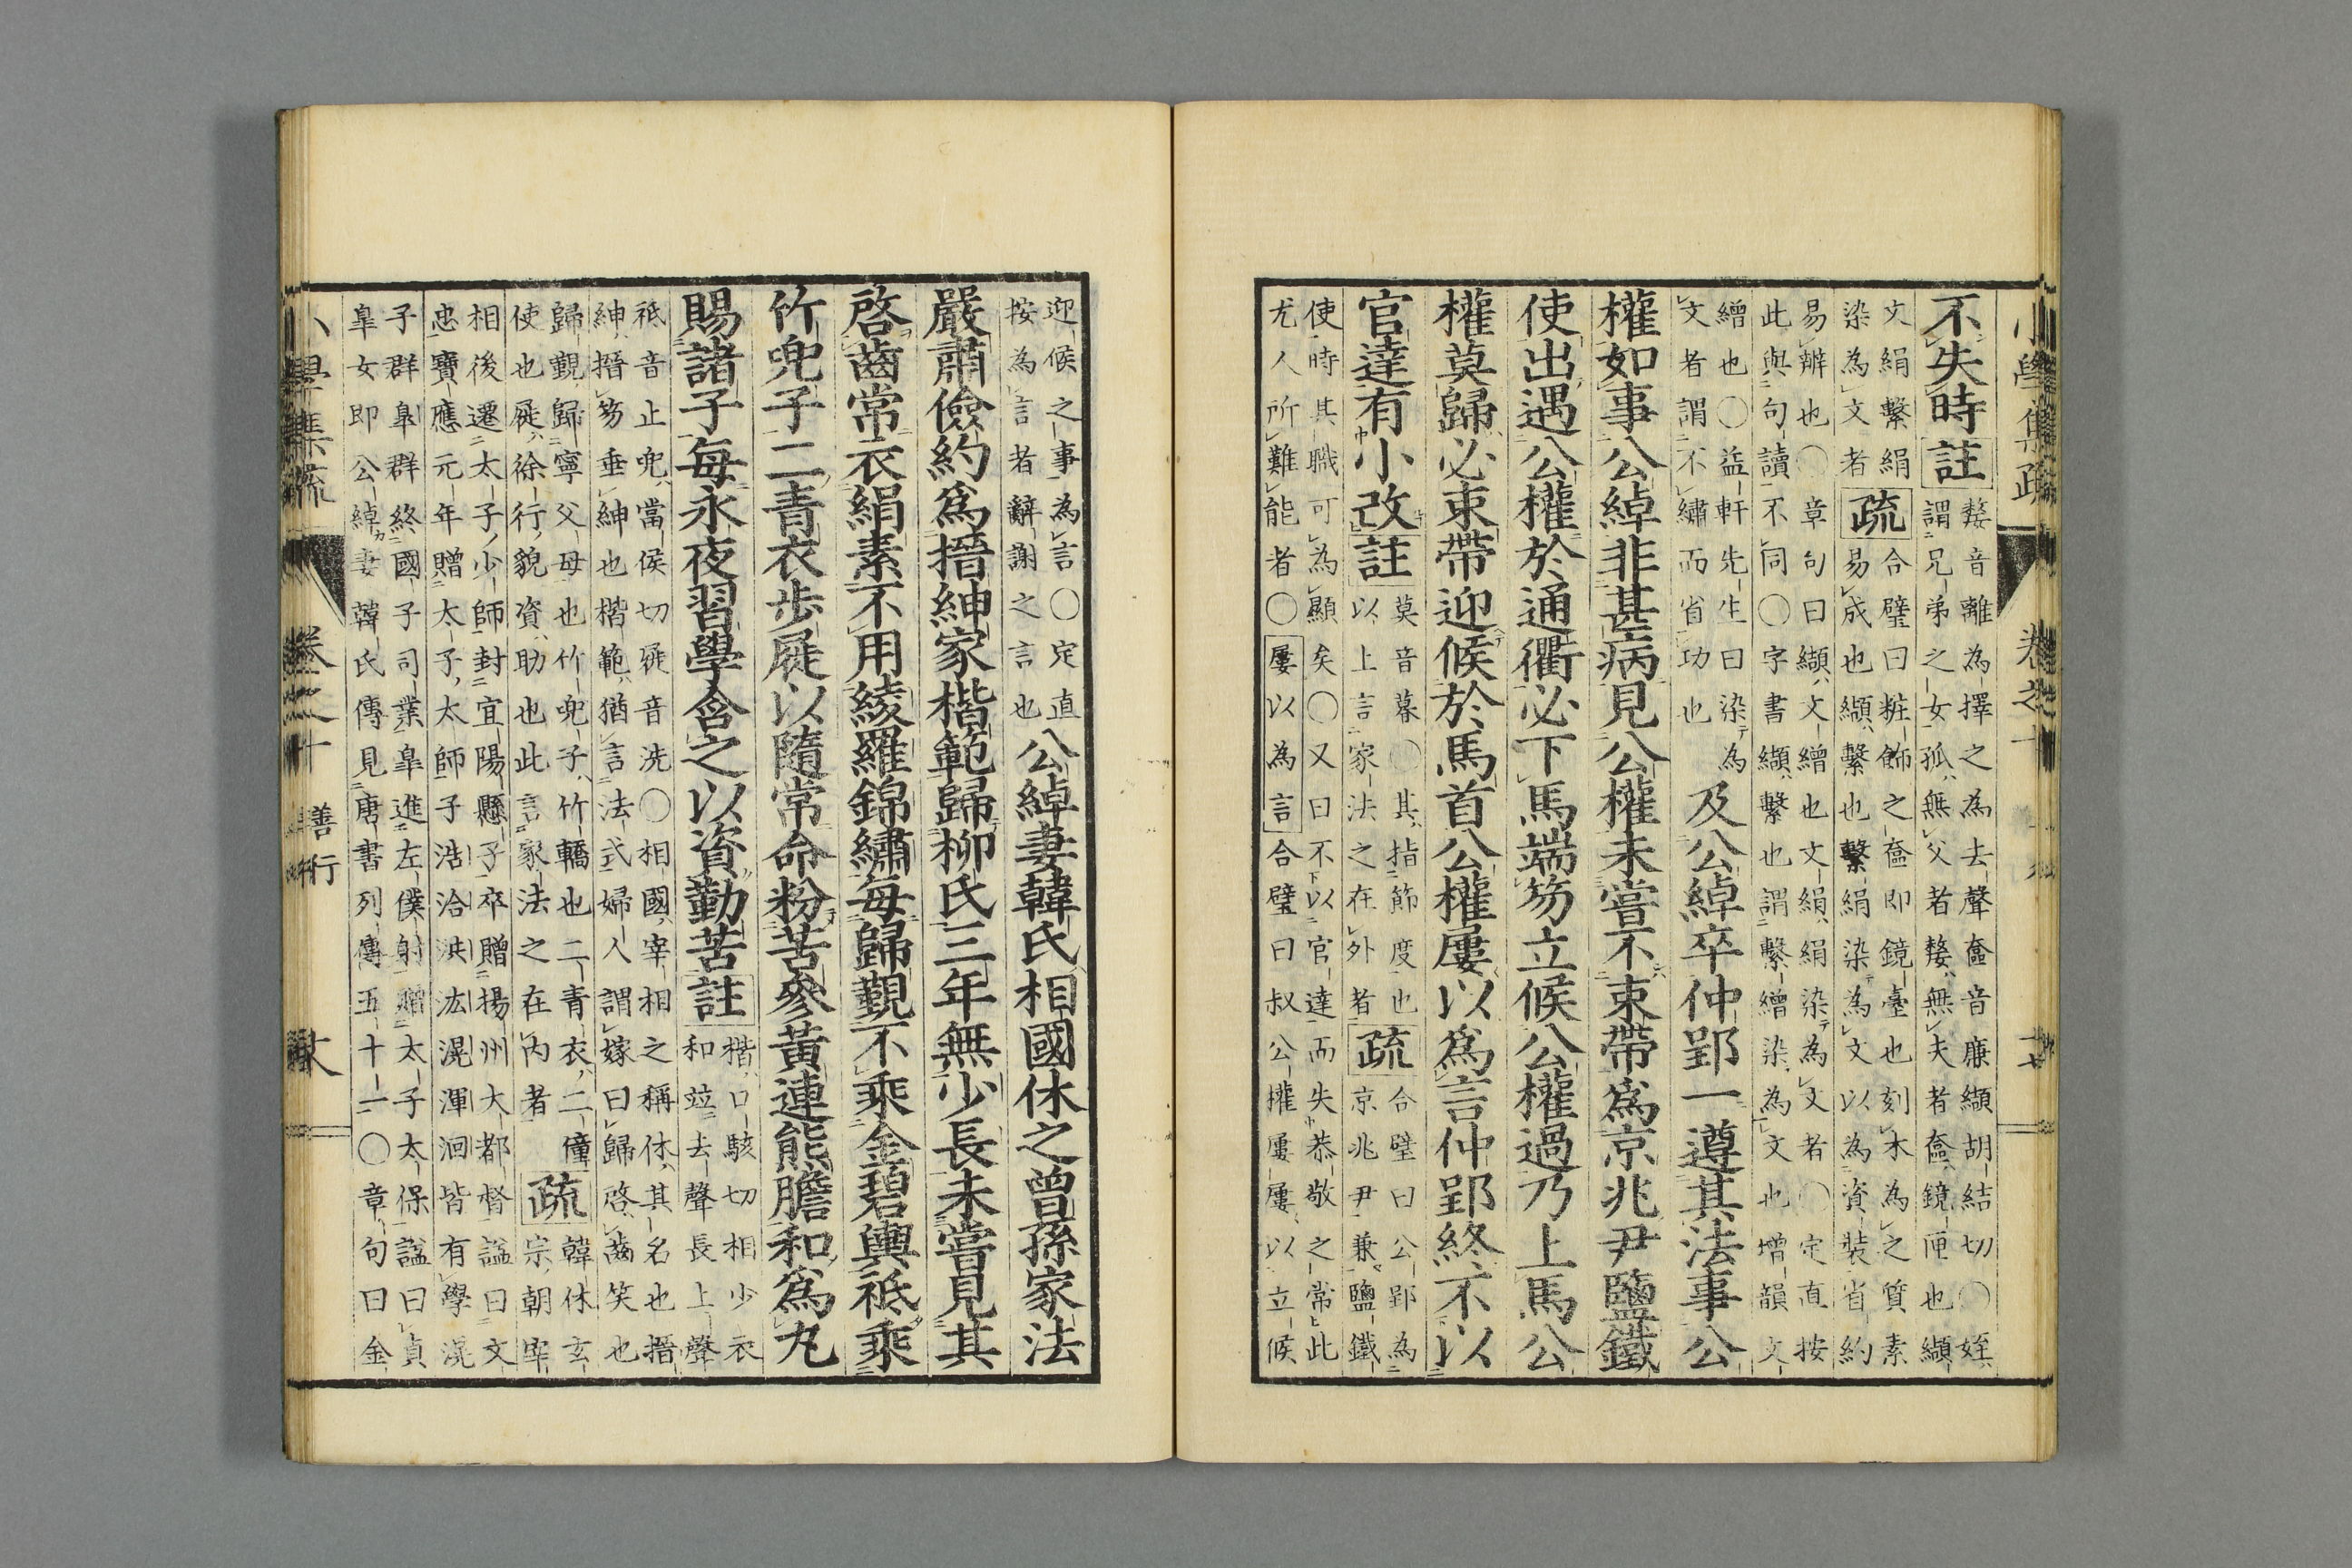 不失時註嫠音離為擇之為去聲奩音廉纈胡結切〇姪
謂兄弟之女孤無父者嫠無夫者奩鏡匣也纈
文絹繫絹
染為文者疏合璧曰粧飾之奩即鏡臺也刻木為之質素
易成也纈繫也繫絹染為文以為資裝省約
易辨也〇章句曰纈文繒也文絹絹染為文者〇定直按
此與句讀不同〇字書纈繫也謂繫繒染為文也增韻文
繒也〇益軒先生曰染為
文者謂不繡而省功也及公綽卒仲郢一遵其法事公
權如事公綽非甚病見公權未嘗不束帶爲京兆尹鹽鐵
使出遇公權於通衢必下馬端笏立候公權過乃上馬公
權莫歸必束帶迎候於馬首公權屢以爲言仲郢終不以
官達有小改註莫音暮〇其指節度也
以上言家法之在外者疏合璧曰公郢為
京兆尹兼鹽鐵
使時其職可為顯矣〇又曰不以官達而失恭敬之常此
尤人所難能者〇屢以為言合璧曰叔公權屢屢以立候
小學集疏 卷之十 善行
迎候之事為言〇定直
按為言者辭謝之言也公綽妻韓氏相國休之曾孫家法
嚴肅儉約爲搢紳家楷範歸柳氏三年無少長未嘗見其
啓齒常衣絹素不用綾羅錦繡每歸覲不乘金碧輿祗乘
竹兜子二青衣步屣以隨常命粉苦參黃連熊膽和爲丸
賜諸子每永夜習學含之以資勤苦註楷口駭切相少衣
和竝去聲長上聲
祗音止兜當侯切屣音洗〇相國宰相之稱休其名也搢
紳搢笏垂紳也楷範猶言法式婦人謂嫁曰歸啓齒笑也
歸覲歸寧父母也竹兜子竹轎也二青衣二僮
使也屣徐行貌資助也此言家法之在內者疏韓休玄
宗朝宰
相後遷太子少師封宜陽縣子卒贈揚州大都督謚曰文
忠寶應元年贈太子太師子浩洽洪汯滉渾洄皆有學滉
子群皐群終國子司業皐進左僕射贈太子太保謚曰貞
皐女即公綽妻韓氏傳見唐書列傳五十一〇章句曰金